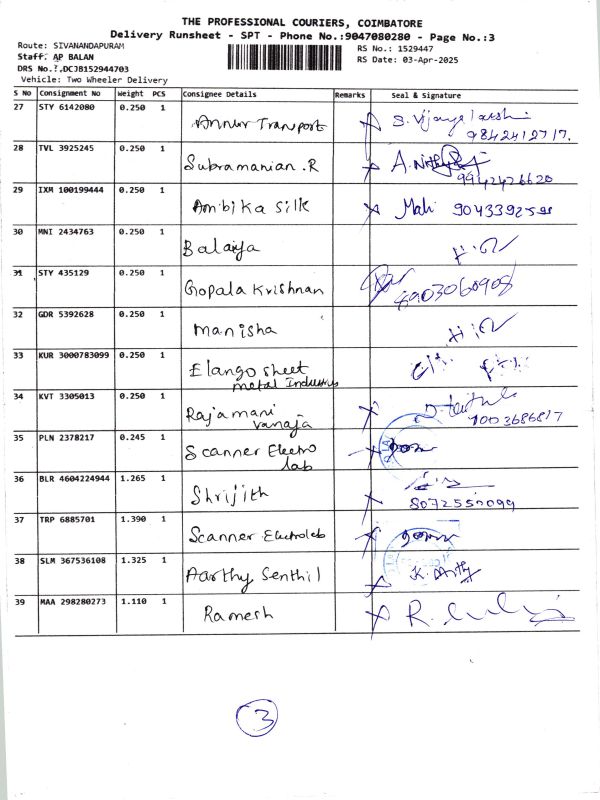 THE PROFESSIONAL COURIERS, COIMBATORE
Delivery Runsheet - SPT - Phone No.:9047080280 - Page No.:3
Route: SIVANANDAPURAM
Staff: AP BALAN
DRS No.:,DCJB152944703
Vehicle: Two Wheeler Delivery
RS No.: 1529447
RS Date: 03-Apr-2025
S No Consignment No Weight PCS Consignee Details Remarks Seal & Signature
27 STY 6142080 0.250 1 Annur Transport S. Vijayalakshmi
9842412717.
28 TVL 3925245 0.250 1 Subramanian.R
9942426620
29 IXM 100199444 0.250 1 Ambika Silk Mali 9043392591
30 MNI 2434763 0.250 1 Balaiya
31 STY 435129 0.250 1 Gopala Krishnan
8903060908
32 GDR 5392628 0.250 1 Manisha
33 KUR 3000783099 0.250 1 Elango sheet
metal Industries
34 KVT 3305013 0.250 1 Rajamani
vanaja
7003686817
35 PLN 2378217 0.245 1 Scanner Electro
lab
36 BLR 4604224944 1.265 1 Shrijith
8072550099
37 TRP 6885701 1.390 1 Scanner Electrolab
38 SLM 367536108 1.325 1 Aarthy Senthil K. Arthy
39 MAA 298280273 1.110 1 Ramesh
3